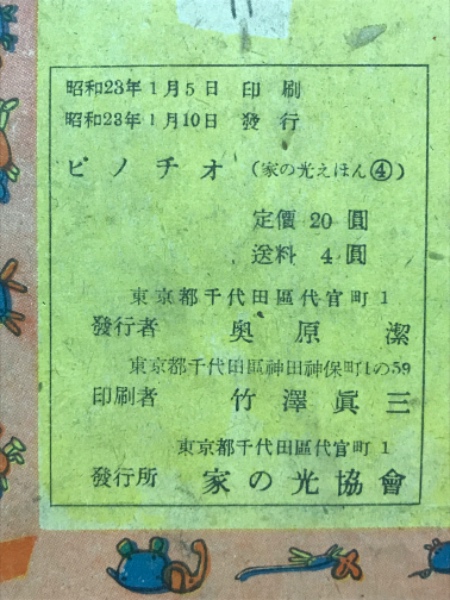 昭和23年1月5日 印刷
昭和23年1月10日 發行
ピノチオ (家の光えほん④)
定價 20 圓
送料 4 圓
東京都千代田區代官町1
發行者 奥原潔
東京都千代田區神田神保町1の59
印刷者 竹澤眞三
東京都千代田區代官町1
發行所 家の光協會